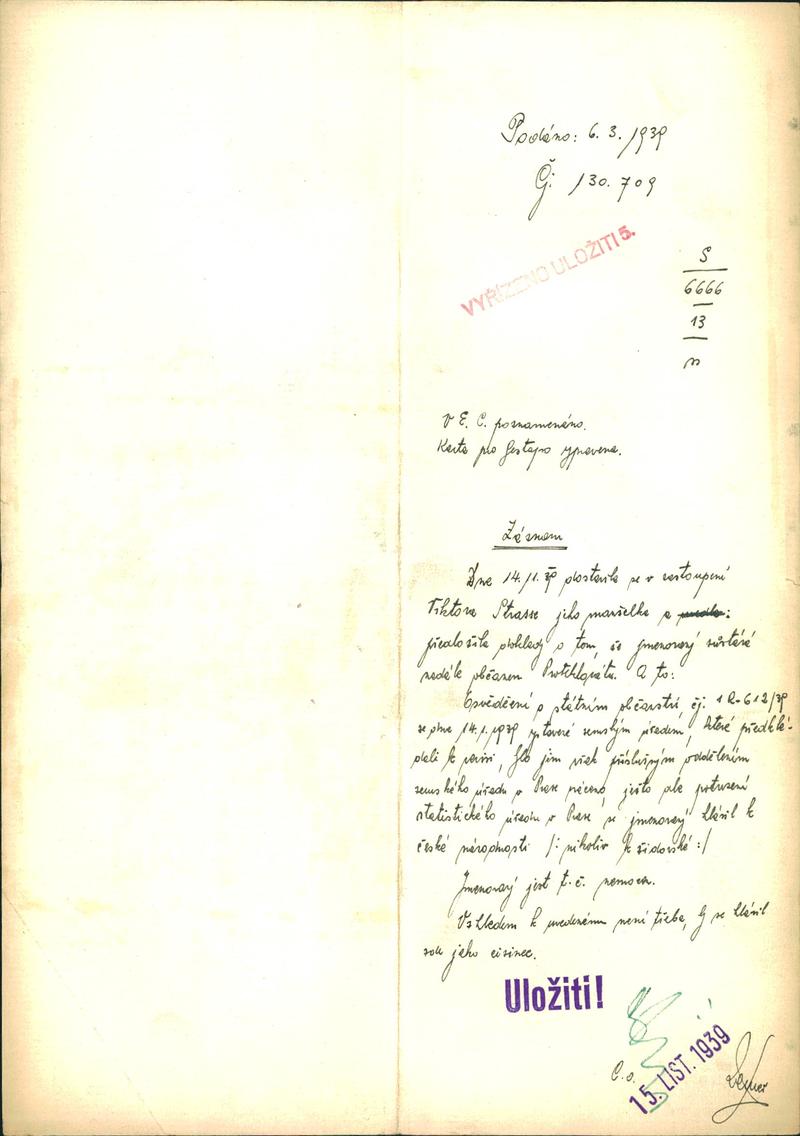 Podáno: 6. 3. 1939
Čj. 130.709
VYŘÍZENO ULOŽITI 5.
S
6666
13
V E. C. poznamenáno.
Karta pro Gestapo vypravena.
Záznam
Dne 14./1. 39 dostavila se v zastoupení
Viktora Strasse jeho manželka a
předložila doklady o tom, že jmenovaný zůstává
nadále občanem Protektorátu. A to:
Osvědčení o státním občanství čj. 1 R-612/39
ze dne 14.1.1939 vystavené zemským úřadem, které předklá-
dali k revisi, bylo jim však příslušným oddělením
zemského úřadu v Praze ježto dle potvrzení
statistického úřadu v Praze se jmenovaný hlásil k
české národnosti /: nikoliv k židovské :/
Jmenovaný jest t. č. nemocen.
Vzhledem k uvedenému není třeba, by se hlásil
zde jako cizinec.
Uložiti!
C. o.
15. LIST. 1939